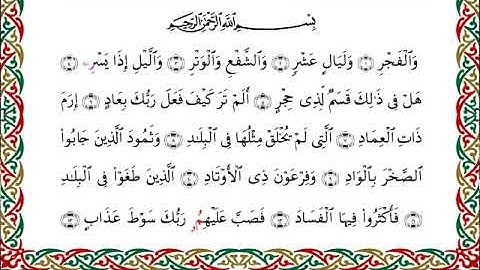 بِسْمِ ٱللَّهِ ٱلرَّحْمَـٰنِ ٱلرَّحِيمِ
وَٱلْفَجْرِ وَلَيَالٍ عَشْرٍ وَٱلشَّفْعِ وَٱلْوَتْرِ وَٱلَّيْلِ إِذَا يَسْرِۦ
هَلْ فِى ذَٰلِكَ قَسَمٌ لِّذِى حِجْرٍ أَلَمْ تَرَ كَيْفَ فَعَلَ رَبُّكَ بِعَادٍ إِرَمَ
ذَاتِ ٱلْعِمَادِ ٱلَّتِى لَمْ يُخْلَقْ مِثْلُهَا فِى ٱلْبِلَـٰدِ وَثَمُودَ ٱلَّذِينَ جَابُوا۟
ٱلصَّخْرَ بِٱلْوَادِ وَفِرْعَوْنَ ذِى ٱلْأَوْتَادِ ٱلَّذِينَ طَغَوْا۟ فِى ٱلْبِلَـٰدِ
فَأَكْثَرُوا۟ فِيهَا ٱلْفَسَادَ فَصَبَّ عَلَيْهِمُۥ رَبُّكَ سَوْطَ عَذَابٍ